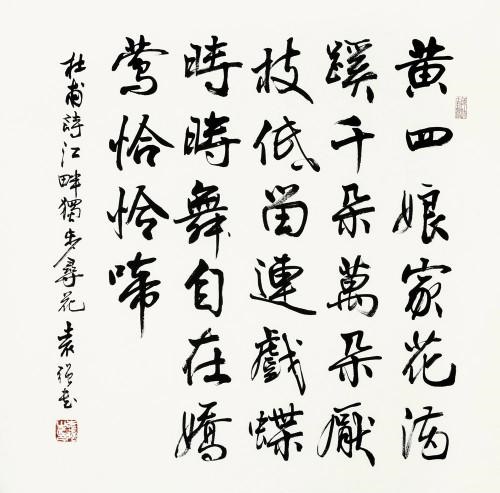 黄四娘家花滿
蹊千朵萬朵壓
枝低留連戲蝶
時時舞自在嬌
鶯恰恰啼
杜甫詩江畔獨步尋花 袁强書